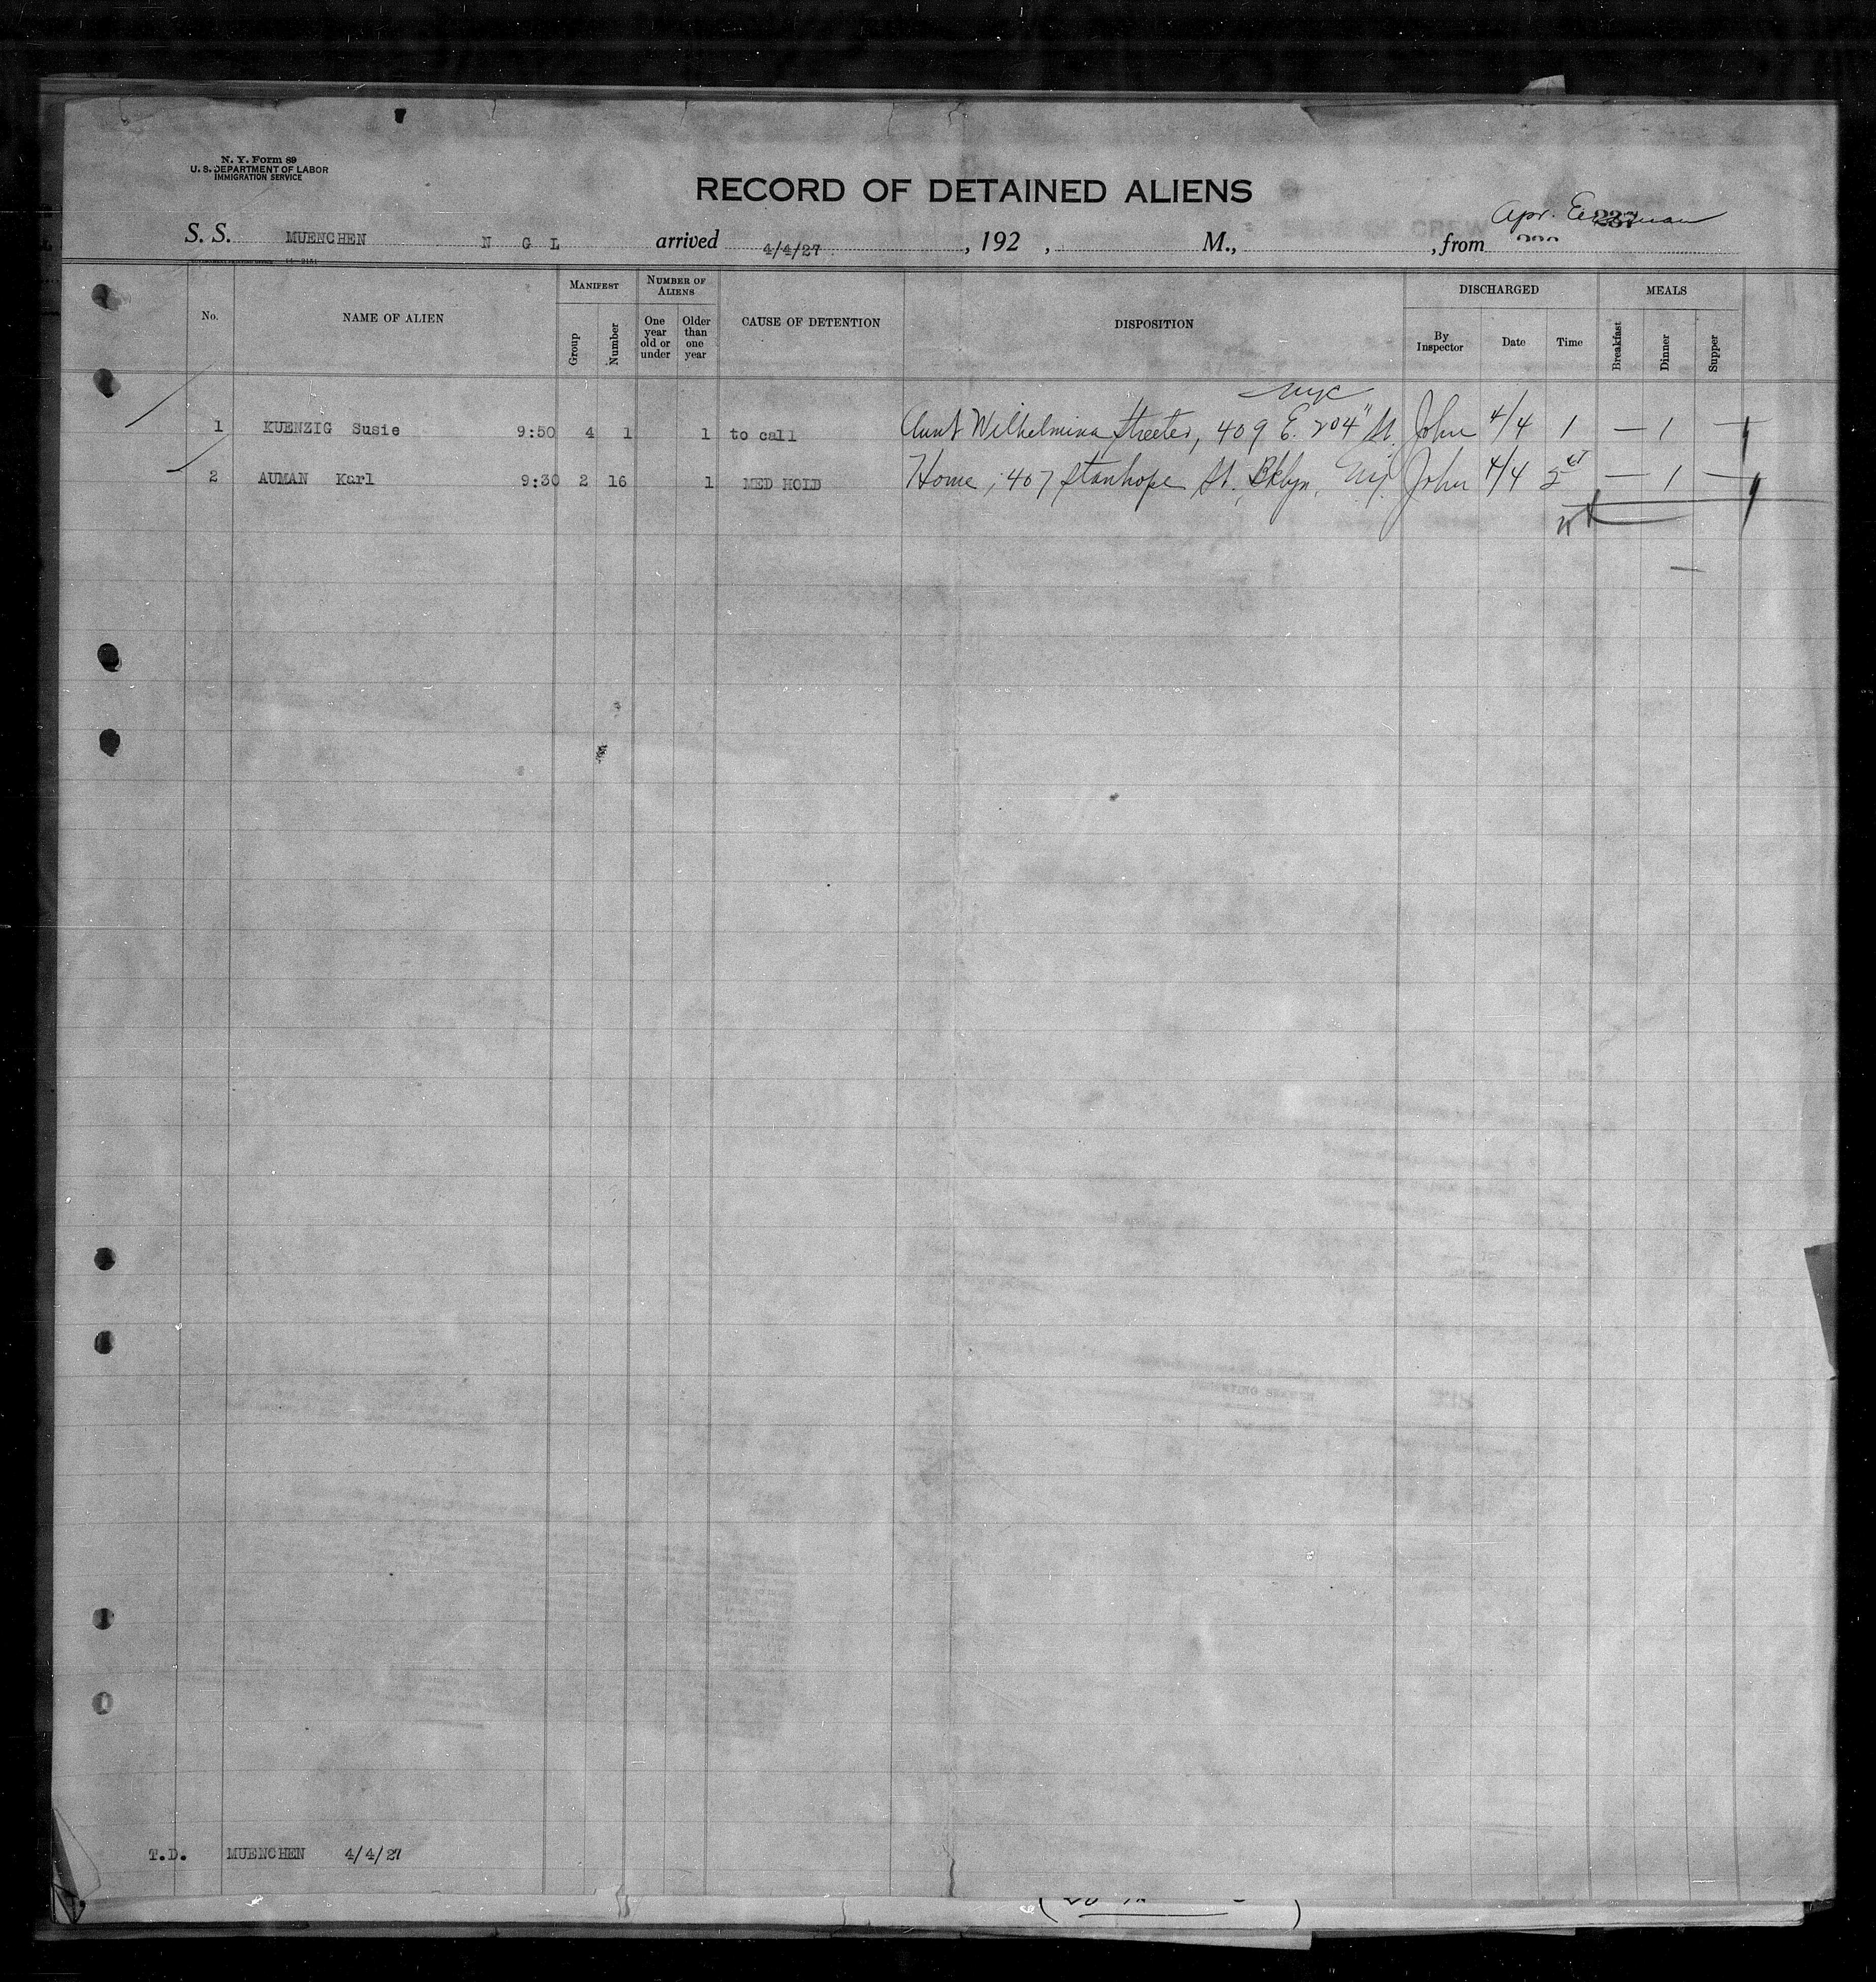 N. Y. Form 89
U. S. DEPARTMENT OF LABOR
IMMIGRATION SERVICE
RECORD OF DETAINED ALIENS
Apr. 237
S. S. MUENCHEN N G L arrived 4/4/27, 192 , M., , from
MANIFEST NUMBER OF ALIENS DISCHARGED MEALS
No. NAME OF ALIEN Group Number One year old or under Older than one year CAUSE OF DETENTION DISPOSITION By Inspector Date Time Breakfast Dinner Supper
NYC
1 KUENZIG Susie 9:50 4 1 1 to call Aunt Wilhelmina Streeter, 409 E. 204" St. John 4/4 1 — 1 —
2 AUMAN Karl 9:30 2 16 1 MED HOLD Home, 407 Stanhope St., Bklyn, NY. John 4/4 — 1 —
T.D. MUENCHEN 4/4/27